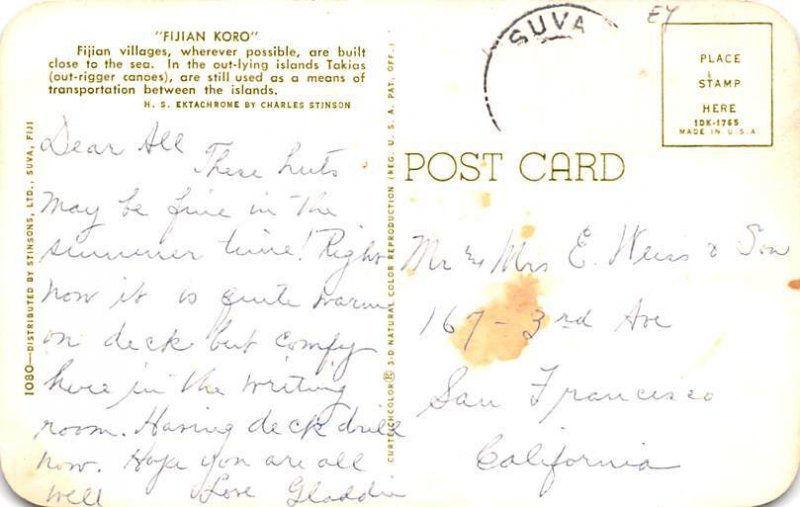 "FIJIAN KORO"
Fijian villages, wherever possible, are built
close to the sea. In the out-lying islands Takias
(out-rigger canoes), are still used as a means of
transportation between the islands.
H. S. EKTACHROME BY CHARLES STINSON
Dear All
These huts
may be fine in the
summer time! Right
now it is quite warm
on deck but comfy
here in the writing
room. Having deck drill
now. Hope you are all
well Love Gladdie
1080—DISTRIBUTED BY STINSONS, LTD., SUVA, FIJI
CURTEICHCOLOR® 3-D NATURAL COLOR REPRODUCTION (REG. U. S. A. PAT. OFF.)
SUVA
EY
PLACE
STAMP
HERE
1DK-1765
MADE IN U.S.A.
POST CARD
Mr & Mrs E. Weiss & Son
167 - 3rd Ave
San Francisco
California